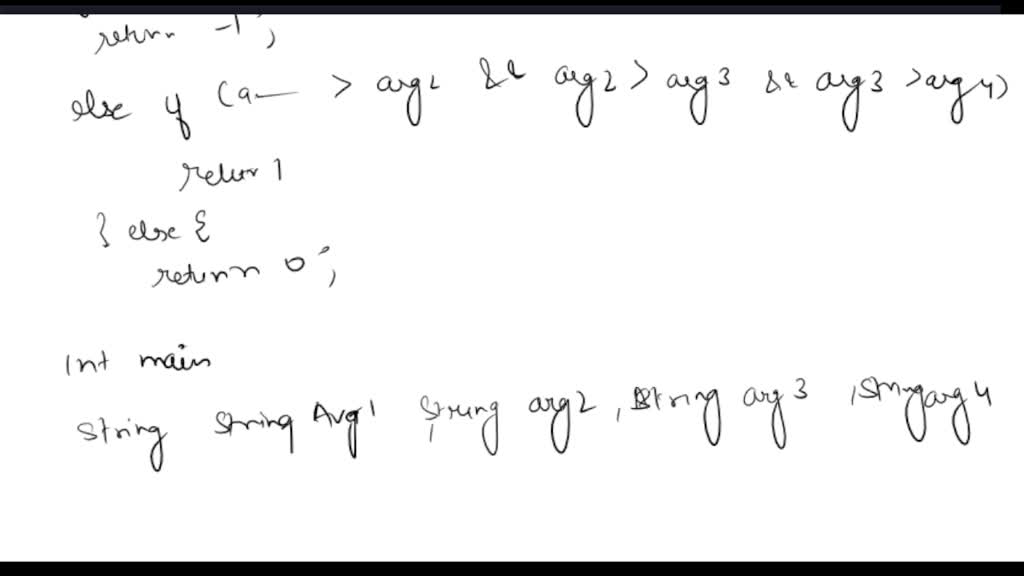 return -1 ;
else if (a > arg1 && arg2 > arg3 && arg3 > arg4)
retur 1
} else {
return 0 ;
Int main
String String Arg1 , String arg2 , String arg3 , String arg4